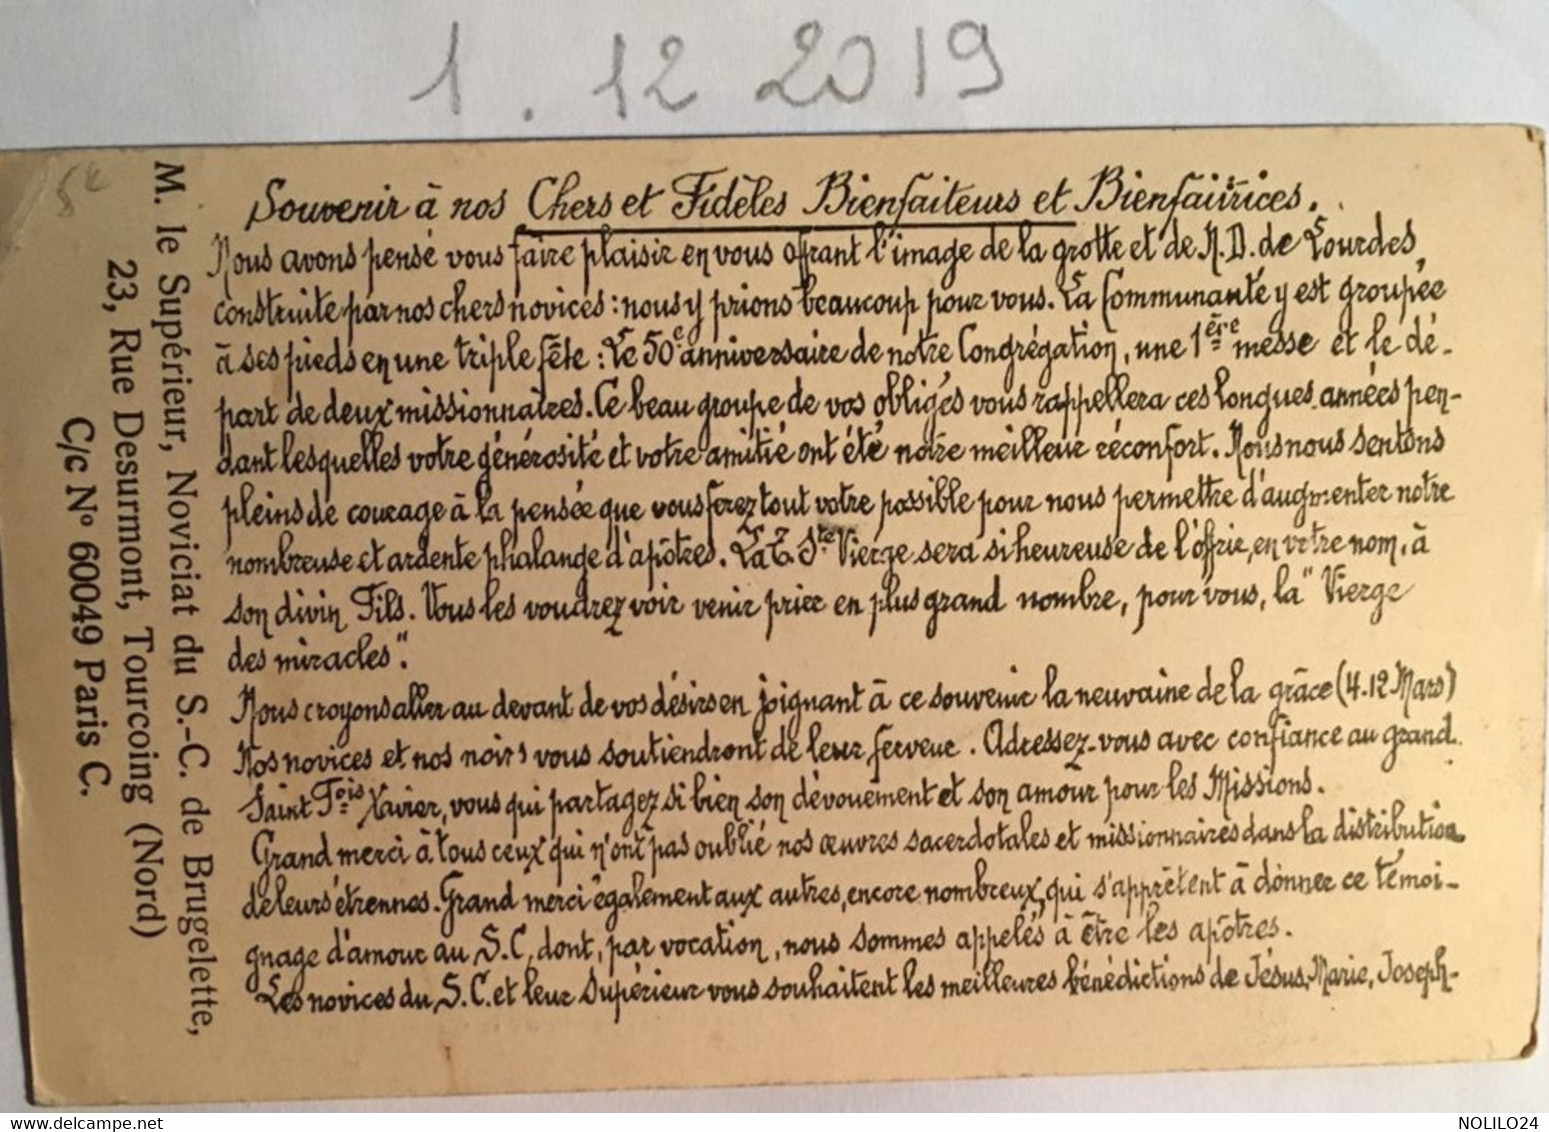 1. 12 2019
5€
Souvenir à nos Chers et Fidèles Bienfaiteurs et Bienfaitrices.
Nous avons pensé vous faire plaisir en vous offrant l'image de la grotte et de N.D. de Lourdes,
construite par nos chers novices : nous y prions beaucoup pour vous. La Communauté y est groupée
à ses pieds en une triple fête : Le 50e anniversaire de notre Congrégation, une 1ère messe et le dé-
part de deux missionnaires. Ce beau groupe de vos obligés vous rappellera ces longues années pen-
dant lesquelles votre générosité et votre amitié ont été notre meilleur réconfort. Nous nous sentons
pleins de courage à la pensée que vous ferez tout votre possible pour nous permettre d'augmenter notre
nombreuse et ardente phalange d'apôtres. La T. Ste Vierge sera si heureuse de l'offrir, en votre nom, à
son divin Fils. Vous les voudrez voir venir prier en plus grand nombre, pour vous, la "Vierge
des miracles".
Nous croyons aller au devant de vos désirs en joignant à ce souvenir la neuvaine de la grâce (4.12 Mars)
Nos novices et nos noirs vous soutiendront de leur ferveur. Adressez-vous avec confiance au grand
Saint Fois Xavier, vous qui partagez si bien son dévouement et son amour pour les Missions.
Grand merci à tous ceux qui n'ont pas oublié nos œuvres sacerdotales et missionnaires dans la distribution
de leurs étrennes. Grand merci également aux autres, encore nombreux, qui s'apprêtent à donner ce témoi-
gnage d'amour au S.C. dont, par vocation, nous sommes appelés à être les apôtres.
Les novices du S.C. et leur Supérieur vous souhaitent les meilleures bénédictions de Jésus, Marie, Joseph-
M. le Supérieur, Noviciat du S.-C. de Brugelette,
23, Rue Desurmont, Tourcoing (Nord)
C/c N° 60049 Paris C.
NOLILO24